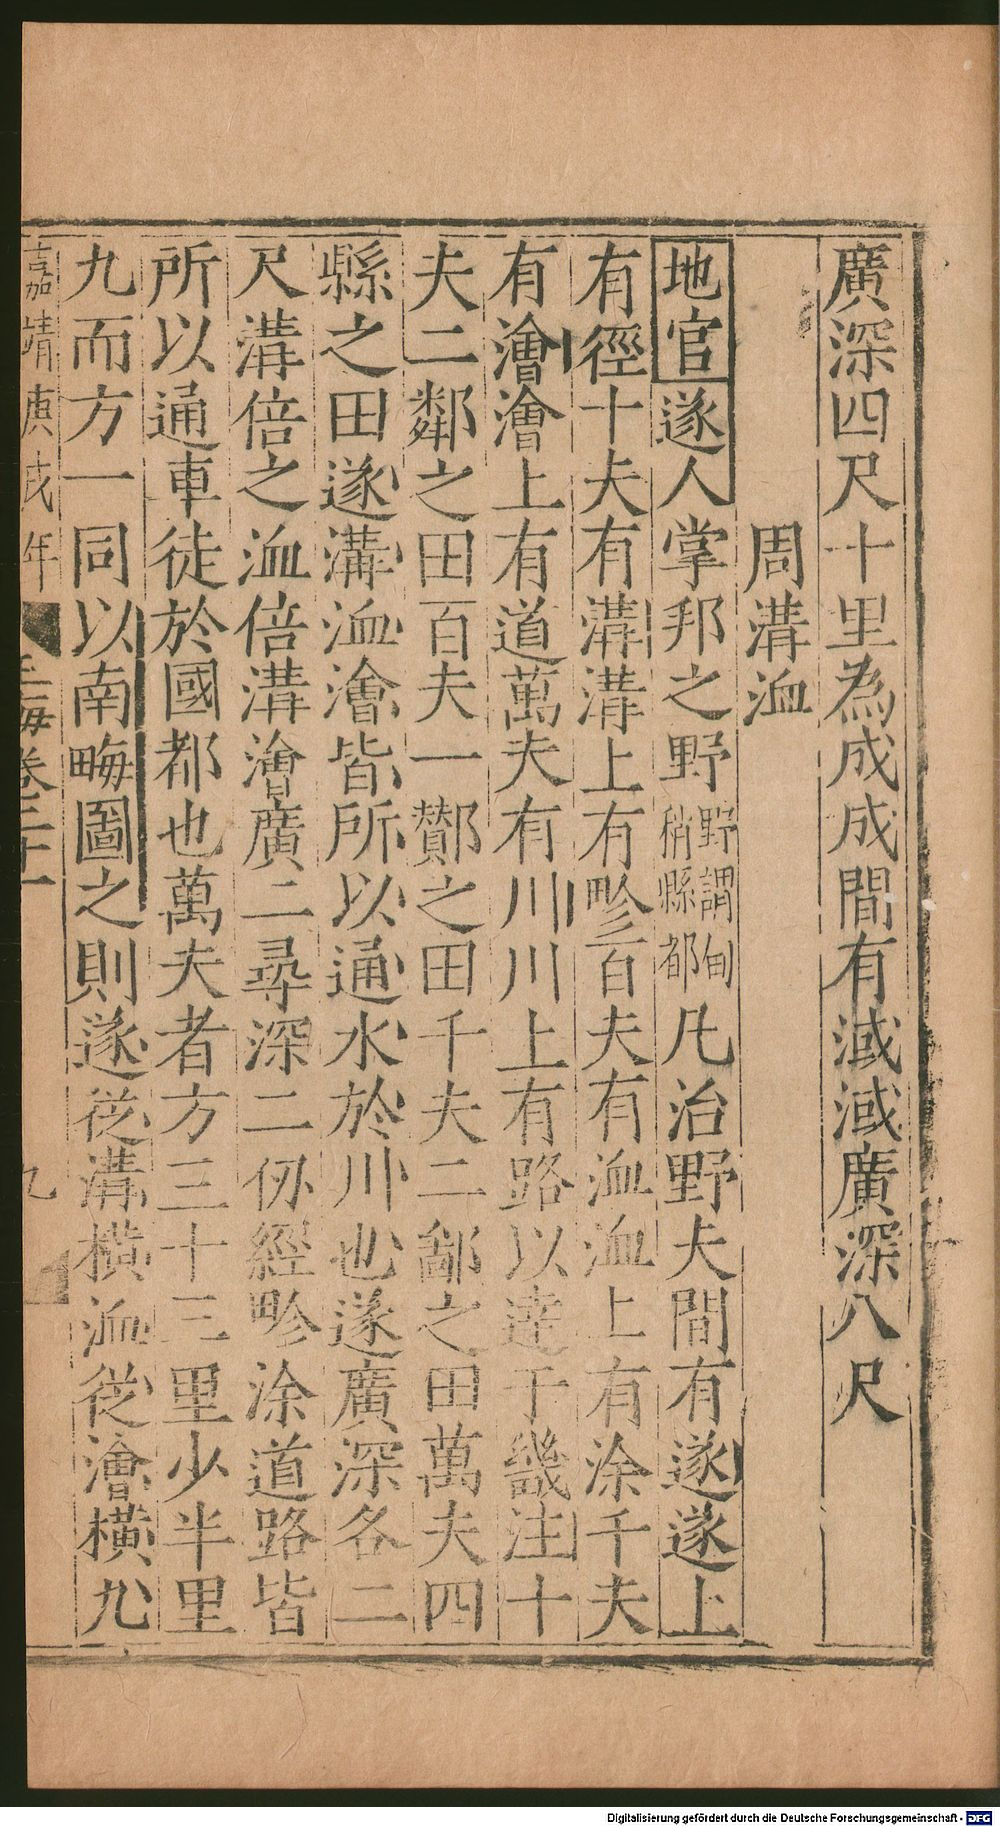 廣深四尺十里為成成間有淢淢廣深八尺
周溝洫
地官遂人掌邦之野野謂甸稍縣都凡治野夫間有遂遂上
有徑十夫有溝溝上有畛百夫有洫洫上有涂千夫
有澮澮上有道萬夫有川川上有路以達于畿注十
夫二鄰之田百夫一酇之田千夫二鄙之田萬夫四
縣之田遂溝洫澮皆所以通水於川也遂廣深各二
尺溝倍之洫倍溝澮廣二尋深二仞經畛涂道路皆
所以通車徒於國都也萬夫者方三十三里少半里
九而方一同以南畮圖之則遂從溝橫洫從澮橫九
嘉靖庚戌年
玉海卷二十一
九
Digitalisierung gefördert durch die Deutsche Forschungsgemeinschaft - DFG